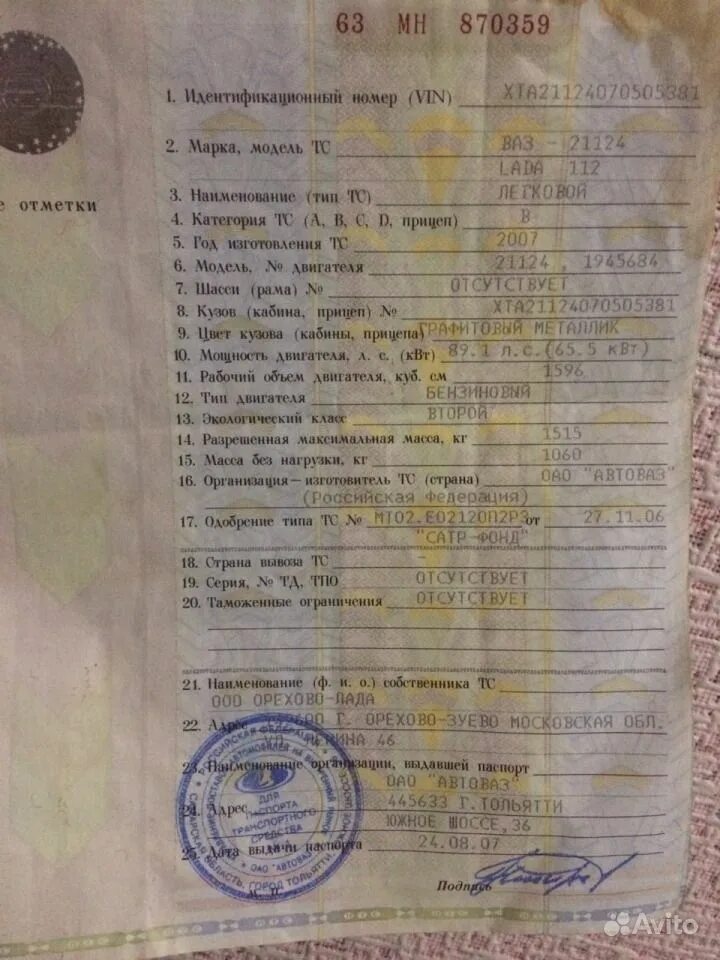 63 МН 870359
1. Идентификационный номер (VIN) XTA21124070505381
2. Марка, модель ТС ВАЗ - 21124
LADA 112
е отметки
3. Наименование (тип ТС) ЛЕГКОВОЙ
4. Категория ТС (A, B, C, D, прицеп) B
5. Год изготовления ТС 2007
6. Модель, № двигателя 21124 , 1945684
7. Шасси (рама) № ОТСУТСТВУЕТ
8. Кузов (кабина, прицеп) № XTA21124070505381
9. Цвет кузова (кабины, прицепа) ГРАФИТОВЫЙ МЕТАЛЛИК
10. Мощность двигателя, л. с. (кВт) 89.1 л.с.(65.5 кВт)
11. Рабочий объем двигателя, куб. см 1596
12. Тип двигателя БЕНЗИНОВЫЙ
13. Экологический класс ВТОРОЙ
14. Разрешенная максимальная масса, кг 1515
15. Масса без нагрузки, кг 1060
16. Организация—изготовитель ТС (страна) ОАО "АВТОВАЗ"
(Российская Федерация)
17. Одобрение типа ТС № МТ02.Е02120П2Р3 от 27.11.06
"САТР-ФОНД"
18. Страна вывоза ТС -
19. Серия, № ТД, ТПО ОТСУТСТВУЕТ
20. Таможенные ограничения ОТСУТСТВУЕТ
21. Наименование (ф. и. о.) собственника ТС
ООО ОРЕХОВО-ЛАДА
22. Адрес Г. ОРЕХОВО-ЗУЕВО МОСКОВСКАЯ ОБЛ.
46
23. Наименование организации, выдавшей паспорт
ОАО "АВТОВАЗ"
24. Адрес 445633 Г.ТОЛЬЯТТИ
ЮЖНОЕ ШОССЕ,36
25. Дата выдачи паспорта 24.08.07
Подпись
М. П.
РОССИЙСКАЯ ФЕДЕРАЦИЯ
САМАРСКАЯ ОБЛАСТЬ, ГОРОД ТОЛЬЯТТИ, ЮЖНОЕ ШОССЕ
ОАО "АВТОВАЗ"
ДЛЯ
ПАСПОРТА
ТРАНСПОРТНОГО
СРЕДСТВА
Avito